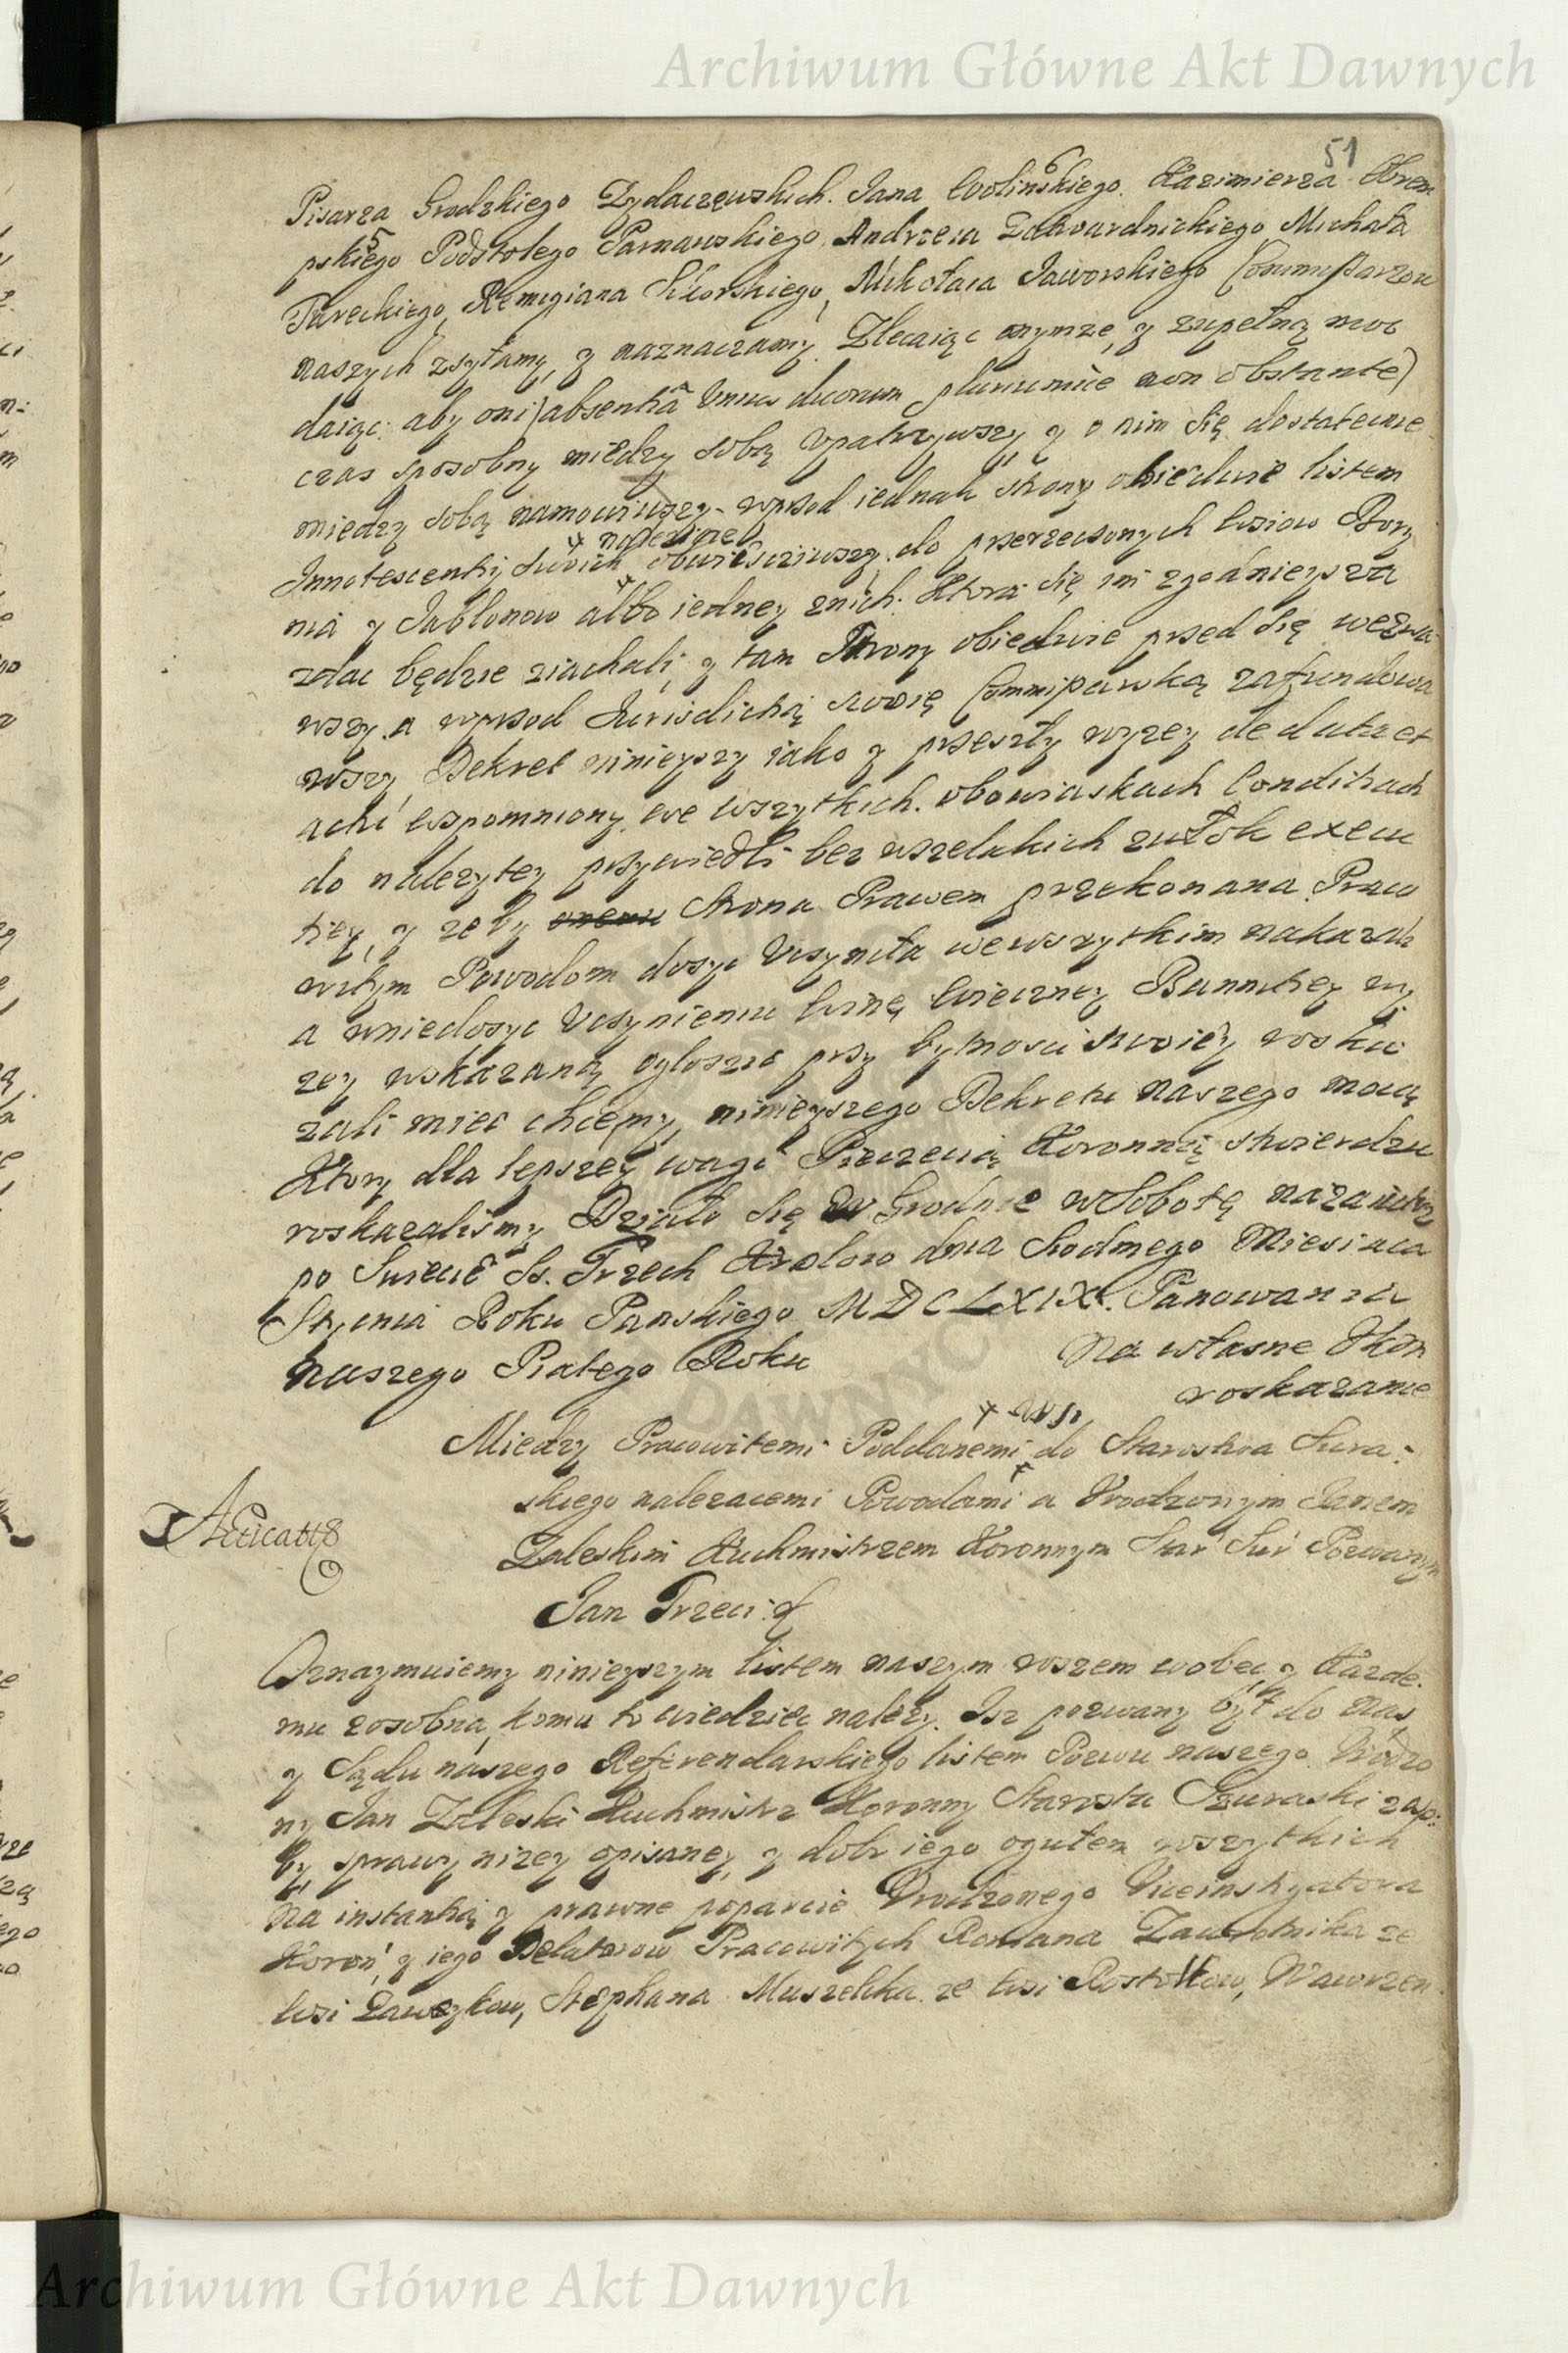 Archiwum Główne Akt Dawnych
51
Pisarza Grodzkiego Zydaczewskich. Jana Wolinskiego. Kazimierza
pskiego Podstolego Parnawskiego, Andrzeia Michała
Tureckiego, Remigiana Sikorskiego, Mikołaia Jaworskiego Commissarzow
naszych zsyłamy, y naznaczamy. Zlecaiąc onymze, y zupełną moc
daiąc: aby oni (absentiâ unius duorum pluriumue non obstante)
czas sposobny miedzy sobą upatrzywszy y o nim się dostatecznie
miedzy sobą namowiwszy, wprzod iednak strony obiedwie listem
należycie
Innotescentiy swoich obwiesciwszy, do przerzeczonych wsiow Bory
nia y Jabłonow albo iedney znich. Ktora się im zgodnieysza
zdac będzie ziachali, y tam Strony obiedwie przed się wezwa
wszy, a wprzod Jurisdictią swoię Commissarską zafundowa
wszy, Dekret ninieyszy iako y przeszły wyzey de data et
wspomniony, we wszytkich. obowiaskach Conditiach
do nalezytey przywiedli bez wszelakich zwłok execu
tiey, y zeby onemu Strona Prawem przekonana Praw
nitym Powodom dosyc uczyniła wewszytkim nakazali
a wniedosyc uczynieniu winę wieczney Bannitiey wy
zey wskazaną ogłosic przy bytnosci swoiey rozka
zali miec chcemy, ninieyszego Dekretu naszego mocą
Ktory dla lepszey wagi Pieczecią Koronną stwierdzic
roskazalismy. Działo się w Grodnie w Sobotę nazaiutrz
po Swiecie SS. Trzech Krolow dnia Siodmego Miesiaca
Stycznia Roku Panskiego MDCLXIX. Panowania
naszego Piątego Roku
Na własne JKM
roskazanie
wsi
Miedzy Pracowitemi Poddanemi do Starostwa Sura:
skiego nalezacemi Powodami a Urodzonym Janem
Zaleskim Kuchmistrzem Koronnym Star Sur Pozwanym
Jan Trzeci
Oznaymuiemy ninieyszym listem naszym wszem wobec y Kazde:
mu zosobna, komu to wiedziec należy. Isz pozwany był do nas
y Sądu naszego Referendarskiego listem Pozwu naszego Urodzo
ny Jan Zaleski Kuchmistrz Koronny Starosta Szuraski
sprawy nizey opisaney, y dobr iego ogułem wszytkich
Na instantią y prawne poparcie Urodzonego Viceinstygatora
Koron, y iego Delatorow Pracowitych Romana Zawrotnika ze
wsi Ławczkow, Stephana Muszelika ze wsi Rostołtow, Wawrzen
Archiwum Główne Akt Dawnych